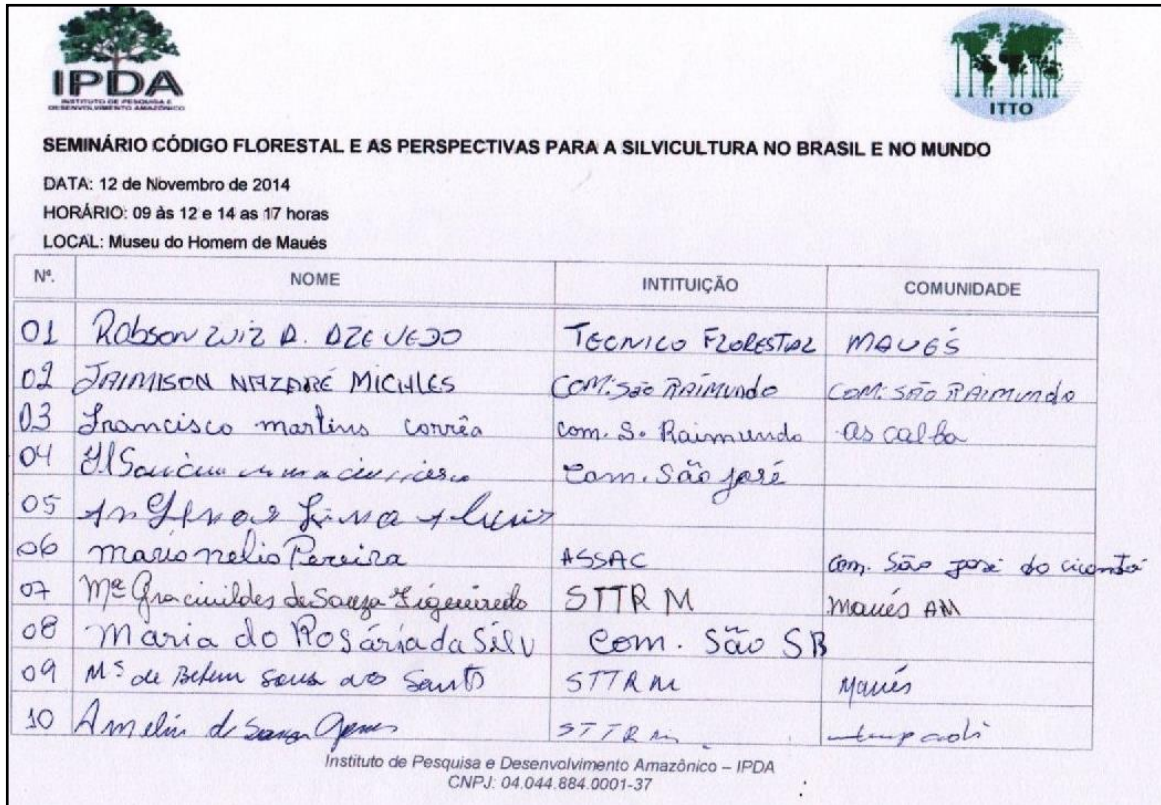 IPDA
INSTITUTO DE PESQUISA E
DESENVOLVIMENTO AMAZÔNICO
ITTO
SEMINÁRIO CÓDIGO FLORESTAL E AS PERSPECTIVAS PARA A SILVICULTURA NO BRASIL E NO MUNDO
DATA: 12 de Novembro de 2014
HORÁRIO: 09 às 12 e 14 as 17 horas
LOCAL: Museu do Homem de Maués
Nº. NOME INTITUIÇÃO COMUNIDADE
01 Robson Luiz D. AZEVEDO TECNICO FLORESTAL MAUÉS
02 JAIMISON NAZARÉ MICHLES COM: São RAIMUNDO COM: SÃO RAIMUNDO
03 Francisco martins corrêa com. S. Raimundo as calba
04 Com. São José
05
06 mario nelio Pereira ASSAC Com. São José do
07 Mª Gracinildes de Souza Figueiredo STTR M Maués AM
08 Maria do Rosária da Silv Com. São SB
09 Mª de Belem Sousa dos Santos STTR M Maués
10 Amelia de Souza Gomes STTR M
Instituto de Pesquisa e Desenvolvimento Amazônico – IPDA
CNPJ: 04.044.884.0001-37